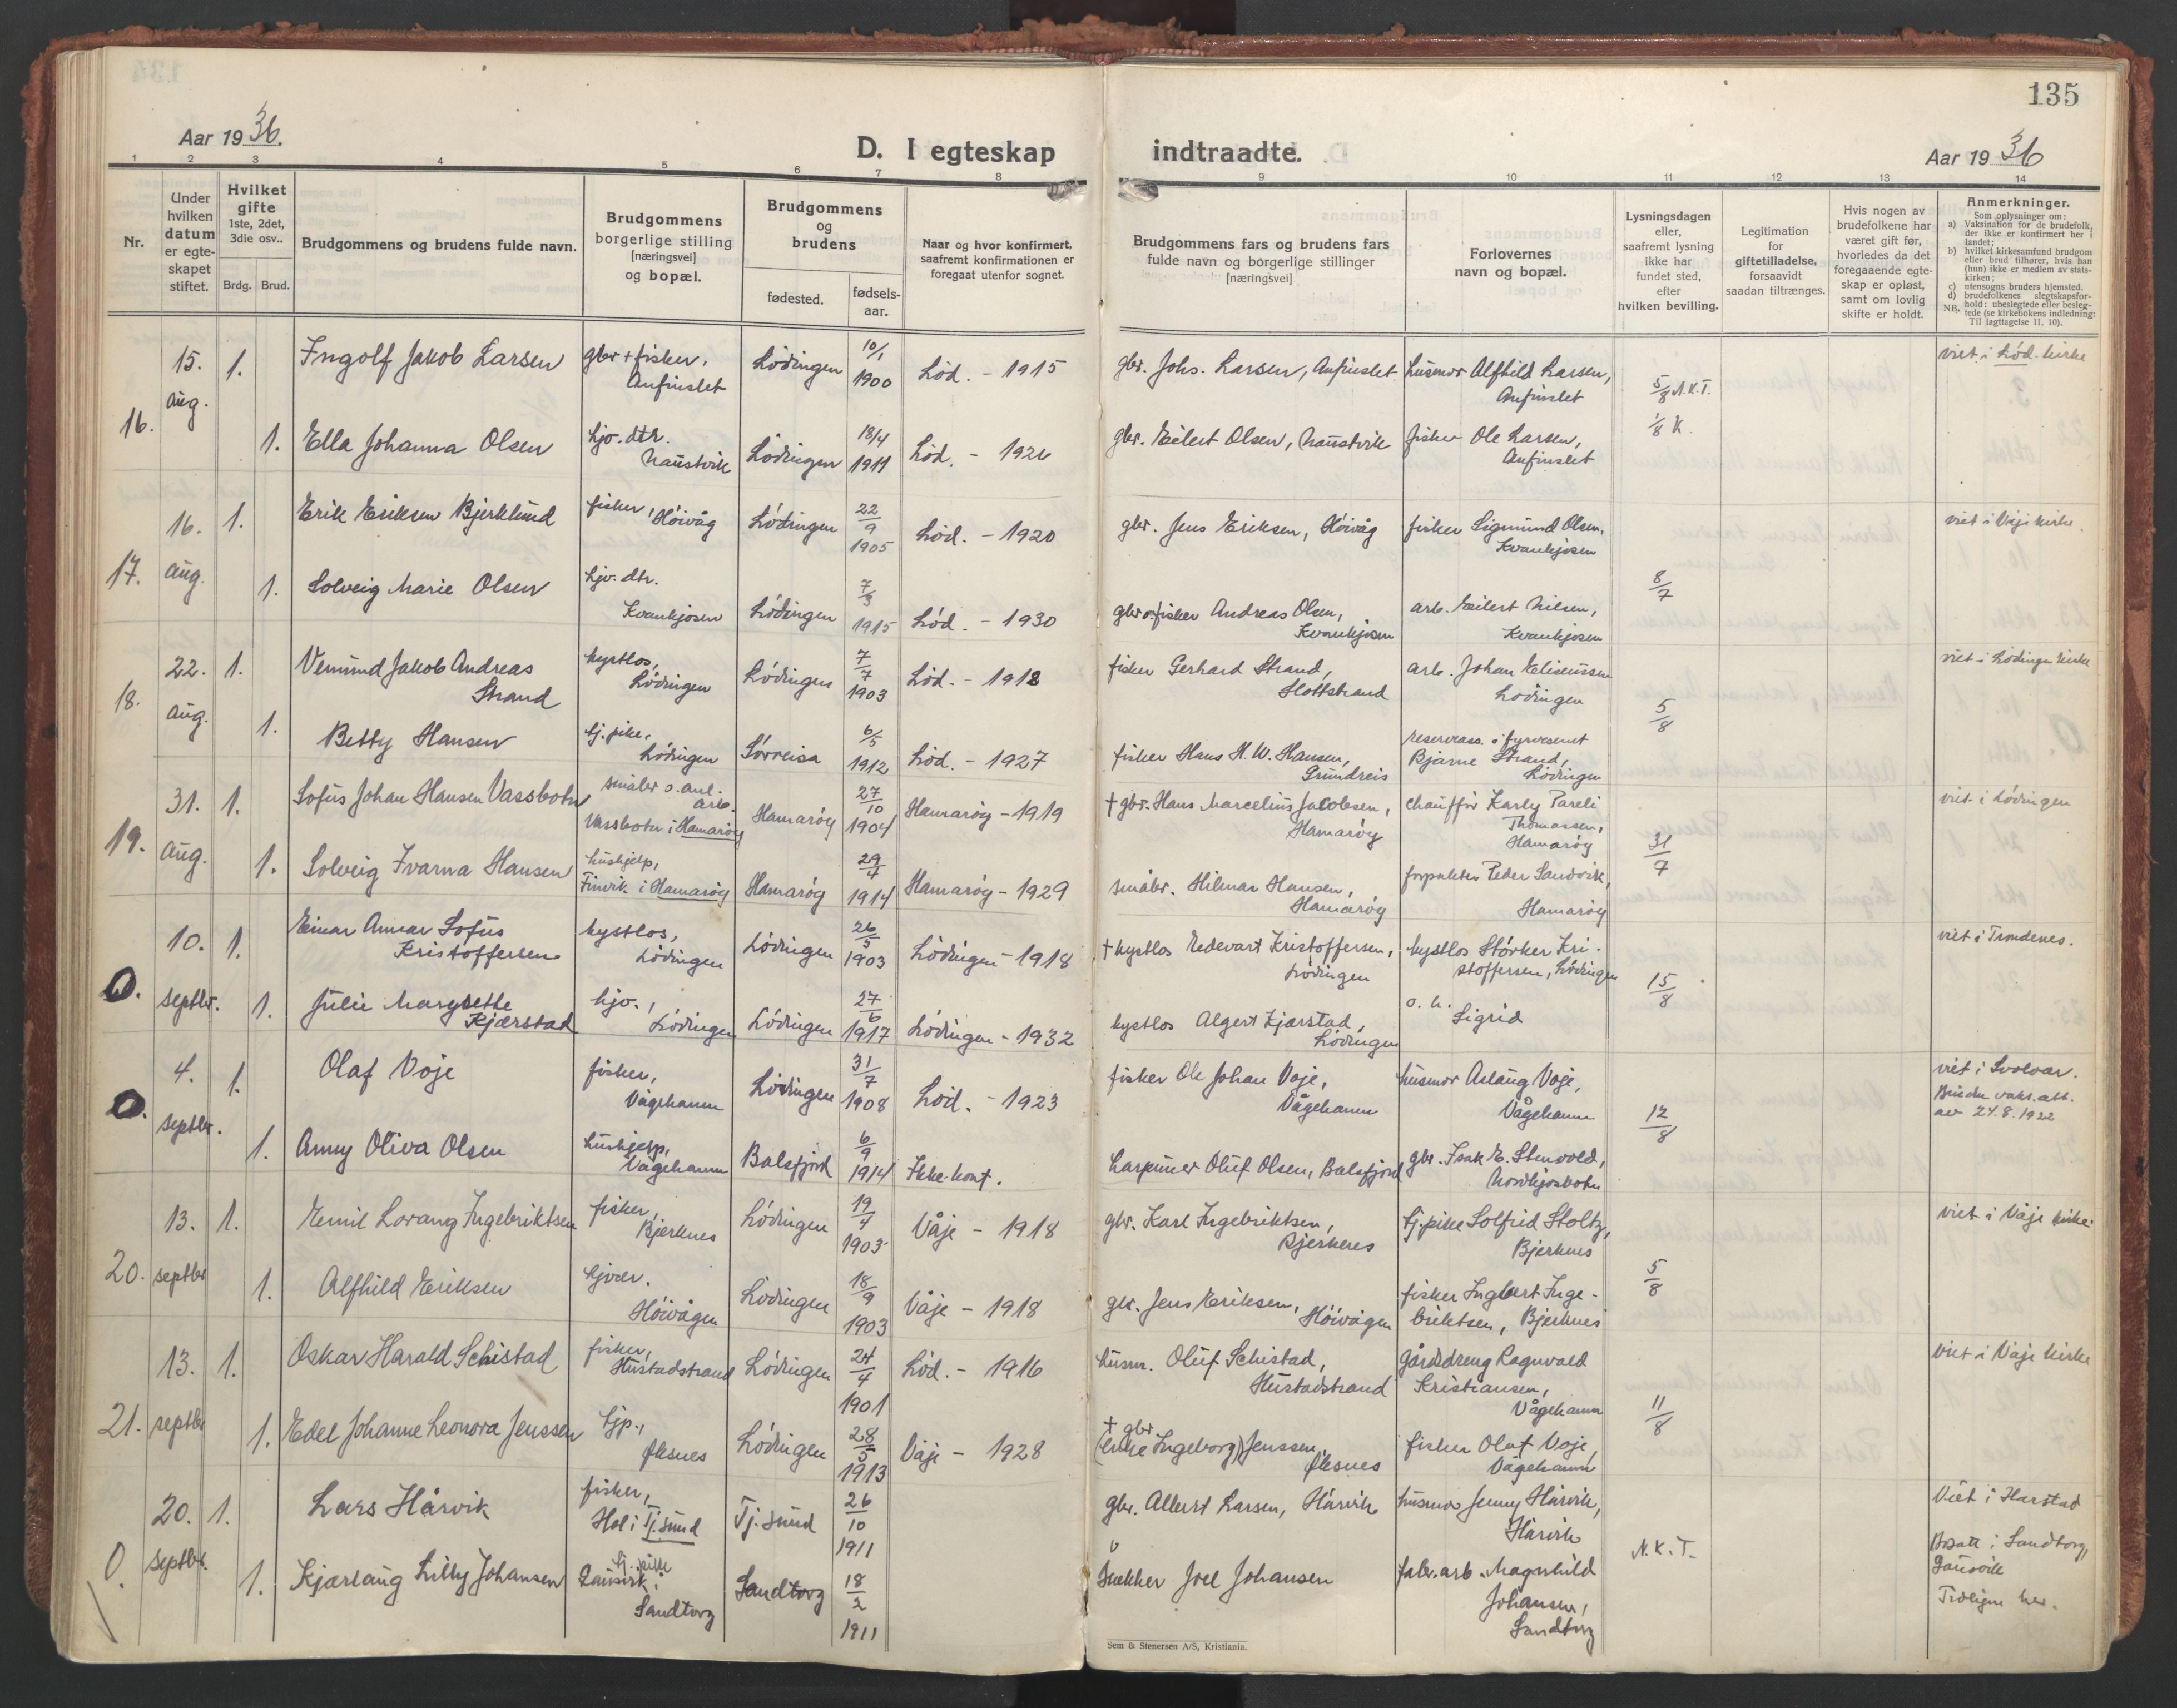 135
Aar 1936.
D. I egteskap indtraadte.
Aar 1936
1 2 3 4 5 6 7 8 9 10 11 12 13 14
Nr.
Under hvilken datum er egteskapet stiftet.
Hvilket gifte 1ste, 2det, 3die osv..
Brdg. Brud.
Brudgommens og brudens fulde navn.
Brudgommens borgerlige stilling [næringsvei] og bopæl.
Brudgommens og brudens
fødested. fødsels-aar.
Naar og hvor konfirmert, saafremt konfirmationen er foregaat utenfor sognet.
Brudgommens fars og brudens fars fulde navn og borgerlige stillinger [næringsvei]
Forlovernes navn og bopæl.
Lysningsdagen eller, saafremt lysning ikke har fundet sted, efter hvilken bevilling.
Legitimation for giftetilladelse, forsaavidt saadan tiltrænges.
Hvis nogen av brudefolkene har været gift før, hvorledes da det foregaaende egteskap er opløst, samt om lovlig skifte er holdt.
Anmerkninger.
Som oplysninger om:
a) Vaksination for de brudefolk, der ikke er konfirmert her i landet;
b) hvilket kirkesamfund brudgom eller brud tilhører, hvis han (hun) ikke er medlem av statskirken;
c) utensogns bruders hjemsted.
d) brudefolkenes slegtskapsforhold: ubeslegtede eller beslegtede (se kirkebokens indledning: Til iagttagelse II. 10).
NB.
16. 15. aug. 1. Ingolf Jakob Larsen gbr + fisker, Anfinslet Lödingen 10/1 1900 Löd. - 1915 gbr. Johs. Larsen, Anfinslet husmor Alfhild Larsen, Anfinslet 5/8 N.K.T. viet i Löd. kirke
1. Ella Johanna Olsen hjv. dtr. Naustvik Lödingen 18/4 1911 Löd. - 1926 gbr. Eilert Olsen, Naustvik fisker Ole Larsen, Anfinslet 1/8 K.
17. 16. aug. 1. Erik Eriksen Bjerklund fisker, Höivåg Lödingen 22/9 1905 Löd. - 1920 gbr. Jens Eriksen, Höivåg fisker Sigmund Olsen, Kvankjosen 8/7 viet i Våje kirke.
1. Solveig Marie Olsen hjv. dtr. Kvankjosen Lödingen 7/3 1915 Löd. - 1930 gbr o. fisker Andreas Olsen, Kvankjosen arb. Eilert Nilsen, Kvankjosen
18. 22. aug. 1. Vemund Jakob Andreas Strand hystlos, Lödingen Lödingen 7/7 1903 Löd. - 1918 fisker Gerhard Strand, Slottstrand arb. Johan Eliseussen Lödingen 5/8 viet i Lödingen kirke
1. Betty Hansen tj. pike, Lödingen Sörreisa 6/5 1912 Löd. - 1927 fisker Hans H. W. Hansen, Grundreis reserveass. i fyrvesenet Bjarne Strand, Lödingen
19. 31. aug. 1. Sofus Johan Hansen Vassbotn småbr o. anl. arb. Vassbotn i Hamaröy Hamaröy 27/10 1904 Hamaröy - 1919 † gbr. Hans Marcelius Jakobsen, Hamaröy chaufför Karly Pareli Thomassen, Hamaröy 31/7 viet i Lödingen
1. Solveig Ivarna Hansen hushjelp, Finvik i Hamaröy Hamaröy 29/7 1914 Hamaröy - 1929 småbr. Hilmar Hansen, Hamaröy forpakter Peder Sandvik, Hamaröy
0. 10. septbr. 1. Einar Annar Sofus Kristoffersen kystlos, Lödingen Lödingen 26/5 1903 Lödingen - 1918 † kystlos Edevart Kristoffersen, Lödingen kystlos Störker Kristoffersen, Lödingen 15/8 viet i Trondenes.
1. Julie Margrethe Kjærstad hjv., Lödingen Lödingen 27/6 1917 Lödingen - 1932 kystlos Algert Kjærstad, Lödingen o. h. Sigrid
0. 4. septbr. 1. Olaf Voje fisker, Vågehamn Lödingen 31/7 1908 Löd. - 1923 fisker Ole Johan Voje, Vågehamn husmor Aslaug Voje, Vågehamn 12/8 viet i Svolvær. Bruden vaks. att. av 24.8.1922
1. Anny Oliva Olsen hushjelp, Vågehamn Balsfjord 6/9 1914 Ikke konf. harpuner Oluf Olsen, Balsfjord gbr. Isak E. Stenvold, Nordkjosbotn
20. 13. septbr 1. Emil Lorang Ingebriktsen fisker, Bjerknes Lödingen 19/4 1903 Våje - 1918 gbr. Karl Ingebriktsen, Bjerknes tj. pike Solfrid Stoltz, Bjerknes 5/8 viet i Våje kirke.
1. Alfhild Eriksen hjvær. Höivågen Lödingen 18/9 1903 Våje - 1918 gbr. Jens Eriksen, Höivågen fisker Ingbert Ingebriktsen, Bjerknes
21. 13. septbr 1. Oskar Harald Schistad fisker, Hustadstrand Lödingen 24/4 1901 Löd. - 1916 husm. Oluf Schistad, Hustadstrand gårdsdreng Ragnvald Kristiansen, Vågehamn 11/8 viet i Våje kirke
1. Edel Johanne Leonora Jenssen tjp., Öksnes Lödingen 28/5 1913 Våje - 1928 † gbr (enke Ingeborg) Jenssen, Öksnes fisker Olaf Voje, Vågehamn
0. 20. septbr. 1. Lars Hårvik fisker, Hol i Tj.sund Tj.sund 26/10 1911 gbr. Albert Larsen, Hårvik husmor Jenny Hårvik, Hårvik N.K.T. Viet i Harstad
1. Kjærlaug Lilly Johansen tj. pike Gausvik, Sandtorg Sandtorg 18/2 1911 Snekker Joel Johansen fabr. arb. Magnhild Johansen, Sandtorg Bosatt i Sandtorg, Gausvik
Sem & Stenersen A/S, Kristiania.